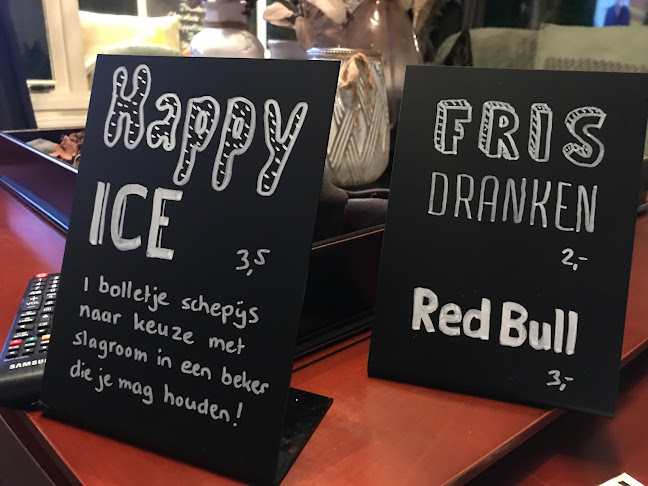 Happy
ICE
3,5
1 bolletje schepijs
naar keuze met
slagroom in een beker
die je mag houden!
FRIS
DRANKEN
2,-
Red Bull
3,-
SAMSUNG